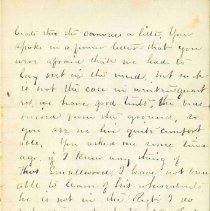 the canvass a little. You
spoke in a former letter that you
were afraid that we had to
lay out in the mud. but such
is not the case in winter quart
we have good tents, the
raised from the ground, so
you see we live quite comfort
able. You asked me some time
ago if I knew any thing of
Smallwood, I have not been
able to learn of his whereabouts
he is not in the Regt I do